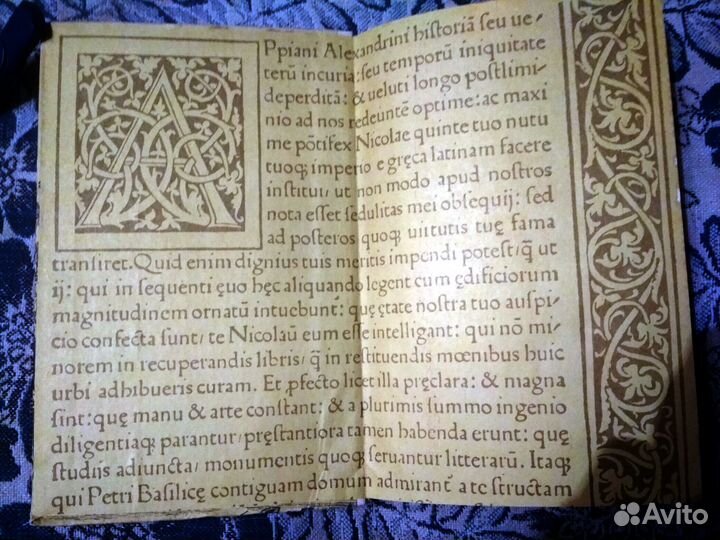 APpiani Alexandrini historiā seu ue⸗
terū incuria:seu temporū iniquitate
deperditā: & ueluti longo postlimi⸗
nio ad nos redeuntē optime: ac maxi
me pōtifex Nicolae quinte tuo nutu
tuoqȝ imperio e gręca latinam facere
institui/ ut non modo apud nostros
nota esset sedulitas mei obsequij: sed
ad posteros quoqȝ uirtutis tuę fama
transiret. Quid enim dignius tuis meritis impendi potest/ q̄ ut
ij: qui in sequenti ęuo hęc aliquando legent cum ędificiorum
magnitudinem ornatū intuebunt: quę ętate nostra tuo auspi⸗
cio confecta sunt/ te Nicolaū eum esse intelligant: qui nō mi⸗
norem in recuperandis libris/ q̄ in restituendis mœnibus huic
urbi adhibueris curam. Et ꝓfecto licet illa pręclara: & magna
sint: quę manu & arte constant: & a plurimis summo ingenio
diligentiaqȝ parantur/ pręstantiora tamen habenda erunt: quę
studijs adiuncta/ monumentis quoqȝ seruantur litterarū. Itaqȝ
qui Petri Basilicę contiguam domum admirant a te structam
Avito